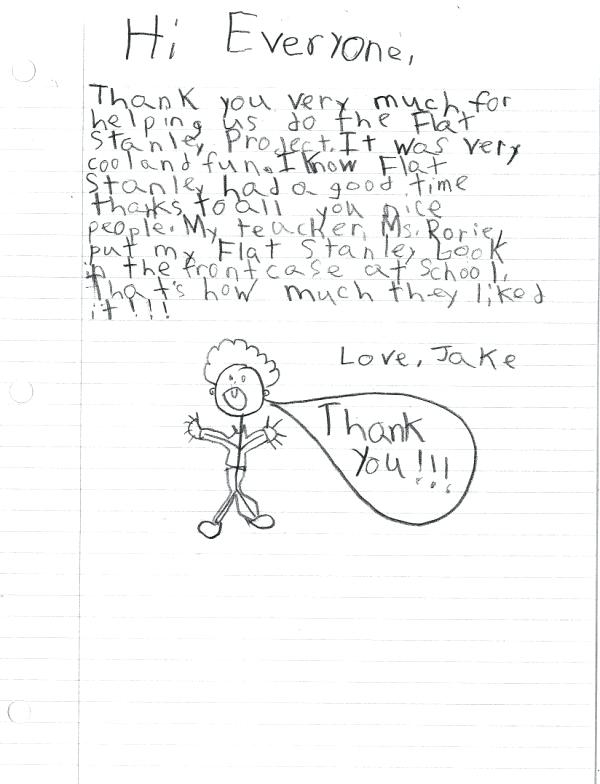 Hi Everyone,
Thank you very much for
helping us do the Flat
Stanley Project. It was very
cool and fun. I know Flat
Stanley had a good time
thanks to all you nice
people. My teacher, Ms. Rorie,
put my Flat Stanley Book
in the front case at school.
That's how much they liked
it!!!
Love, Jake
Thank
You!!!